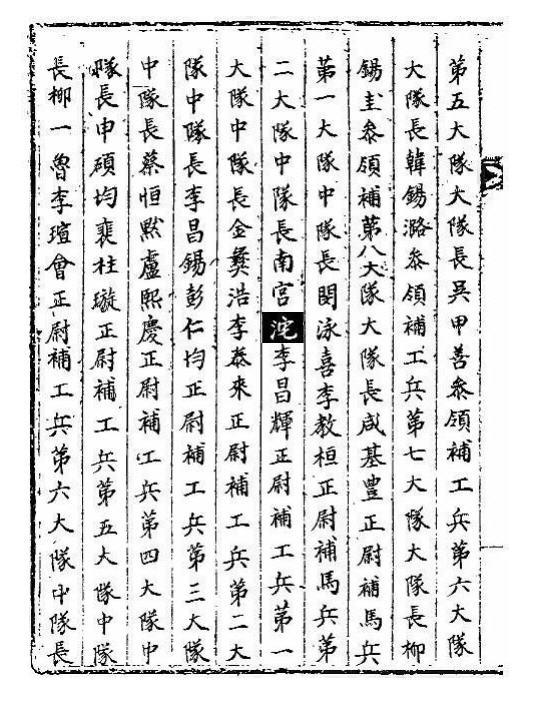 第五大隊大隊長吳甲善叅領補工兵第六大隊
大隊長韓錫潞叅領補工兵第七大隊大隊長柳
錫圭叅領補第八大隊大隊長咸基豊正尉補馬兵
第一大隊中隊長閔泳喜李教桓正尉補馬兵第
二大隊中隊長南宮沱李昌輝正尉補工兵第一
大隊中隊長金彛浩李泰來正尉補工兵第二大
隊中隊長李昌錫彭仁均正尉補工兵第三大隊
中隊長蔡恒默盧熙慶正尉補工兵第四大隊中
隊長申碩均裵柱璇正尉補工兵第五大隊中隊
長柳一魯李瑄會正尉補工兵第六大隊中隊長